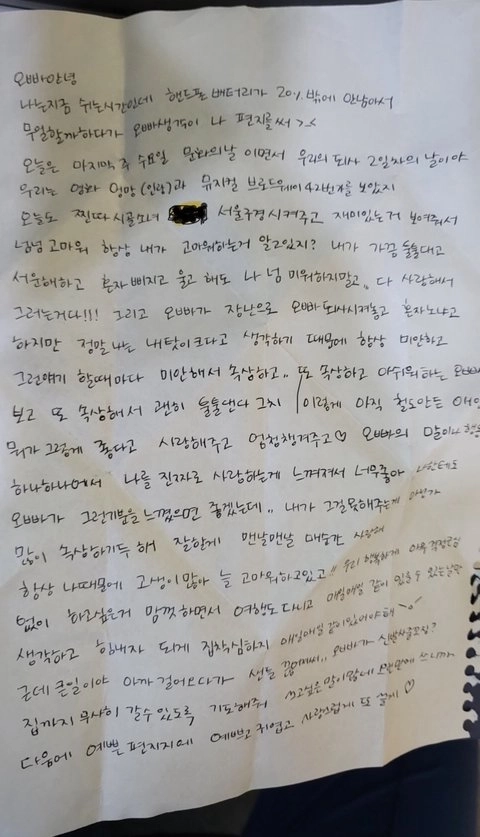 오빠안녕
나는지금 쉬는시간인데 핸드폰 배터리가 20% 밖에 안남아서
무얼할까하다가 오빠생각이 나 편지를써 >_<
오늘은 마지막 주 수요일 문화의날 이면서 우리의 퇴사 2일차의 날이야
우리는 영화 엉망(인랑)과 뮤지컬 브로드웨이 42번가를 보았지
오늘도 찐따 시골소녀 서울구경 시켜주고 재미있는거 보여줘서
넘넘 고마워 항상 내가 고마워하는거 알고있지? 내가 가끔 툴툴대고
서운해하고 혼자 삐지고 울고 해도 나 넘 미워하지말고.. 다 사랑해서
그러는거다!!! 그리고 오빠가 장난으로 오빠 퇴사시켜놓고 혼자노냐고
하지만 정말 나는 내탓이크다고 생각하기 때문에 항상 미안하고
그런얘기 할때마다 미안해서 속상하고.. 또 속상하고 아쉬워하는 오빠
보고 또 속상해서 괜히 툴툴댄다 그치 이렇게 아직 철도안든 애인
뭐가 그렇게 좋다고 사랑해주고 엄청챙겨주고♡ 오빠의 말이나 행동
하나하나에서 나를 진짜로 사랑하는게 느껴져서 너무좋아 나한테도
오빠가 그런기분을 느꼈으면 좋겠는데.. 내가 그걸못해주는게 아닌가
많이 속상하기두 해 잘할게 맨날맨날 매순간 사랑해
항상 나때문에 고생이많아 늘 고마워하고있고!! 우리 행복하게 아무걱정근심
없이 하고싶은거 맘껏 하면서 여행도 다니고 매일매일 같이 있을 수 있는날만
생각하고 힘내자 되게 집착심하지 매일매일 같이있어야해
근데 큰일이야 아까 걸어오다가 샌들 끊어져써.. 오빠가 신발사줄꼬임?
집까지 무사히 갈수 있도록 기도해줘 쓰고싶은 말이많에 쓰니까
다음에 예쁜 편지지에 예쁘고 귀엽고 사랑스럽게 또 쓸게♡